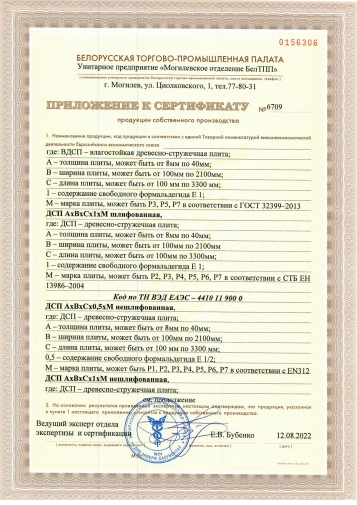 0156306
БЕЛОРУССКАЯ ТОРГОВО-ПРОМЫШЛЕННАЯ ПАЛАТА
Унитарное предприятие «Могилевское отделение БелТПП»
( наименование унитарного предприятия Белорусской торгово-промышленной палаты, место нахождения, телефон )
г. Могилев, ул. Циолковского, 1, тел.77-80-31
ПРИЛОЖЕНИЕ К СЕРТИФИКАТУ №6709
продукции собственного производства
1. Наименование продукции, код продукции в соответствии с единой Товарной номенклатурой внешнеэкономической
деятельности Евразийского экономического союза
где: ВДСП – влагостойкая древесно-стружечная плита;
А – толщина плиты, может быть от 8мм по 40мм;
В – ширина плиты, может быть от 100мм по 2100мм
С – длина плиты, может быть от 100 мм по 3300 мм;
1 – содержание свободного формальдегида Е 1;
М – марка плиты, может быть Р3, Р5, Р7 в соответствии с ГОСТ 32399–2013
ДСП АхВхСх1хМ шлифованная,
где: ДСП – древесно-стружечная плита;
А – толщина плиты, может быть от 8мм по 40мм;
В – ширина плиты, может быть от 100мм по 2100мм
С – длина плиты, может быть от 100 мм по 3300мм;
1 – содержание свободного формальдегида Е 1;
М – марка плиты, может быть Р2, Р3, Р4, Р5, Р6, Р7 в соответствии с СТБ ЕН
13986–2004
Код по ТН ВЭД ЕАЭС – 4410 11 900 0
ДСП АхВхСх0,5хМ нешлифованная,
где: ДСП – древесно-стружечная плита;
А – толщина плиты, может быть от 8мм по 40мм;
В – ширина плиты, может быть от 100мм по 2100мм
С – длина плиты, может быть от 100 мм по 3300 мм;
0,5 – содержание свободного формальдегида Е 1/2;
М – марка плиты, может быть Р1, Р2, Р3, Р4, Р5, Р6, Р7 в соответствии с EN312
ДСП АхВхСх1хМ нешлифованная,
где: ДСП – древесно-стружечная плита;
см. продолжение
2. На основании результатов проведенной экспертизы настоящим подтверждаем, что продукция, указанная
в пункте 1 настоящего приложения, относится к продукции собственного производства.
Ведущий эксперт отдела
экспертизы и сертификации
Е.В. Бубенко
12.08.2022